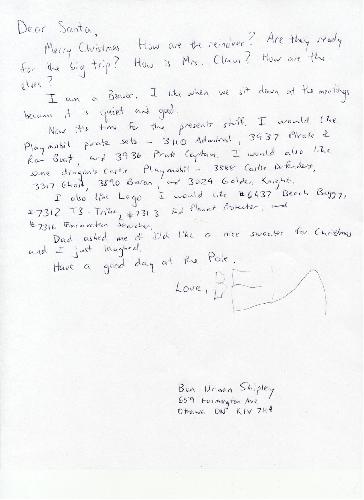 Dear Santa,
Merry Christmas. How are the reindeer? Are they ready
for the big trip? How is Mrs. Claus? How are the
elves?
I am a Beaver. I like when we sit down at the meetings
because it is quiet and good.
Now it's time for the presents stuff. I would like
Playmobil pirate sets - 3110 Admiral, 3937 Pirate 2
Row Boat, and 3936 Pirate Captain. I would also like
some dragon's castle Playmobil - 3888 Castle Defenders,
3317 Ghost, 3890 Baron, and 3024 Golden Knights.
I also like Lego. I would like #6437 Beach Buggy,
#7312 T3-Trike, #7313 Red Planet Protector, and
#7316 Excavation Searcher.
Dad asked me if I'd like a nice sweater for Christmas
and I just laughed.
Have a good day at the Pole.
Love, BEN
Ben Shipley
Farmington Ave
Ottawa ON K1V